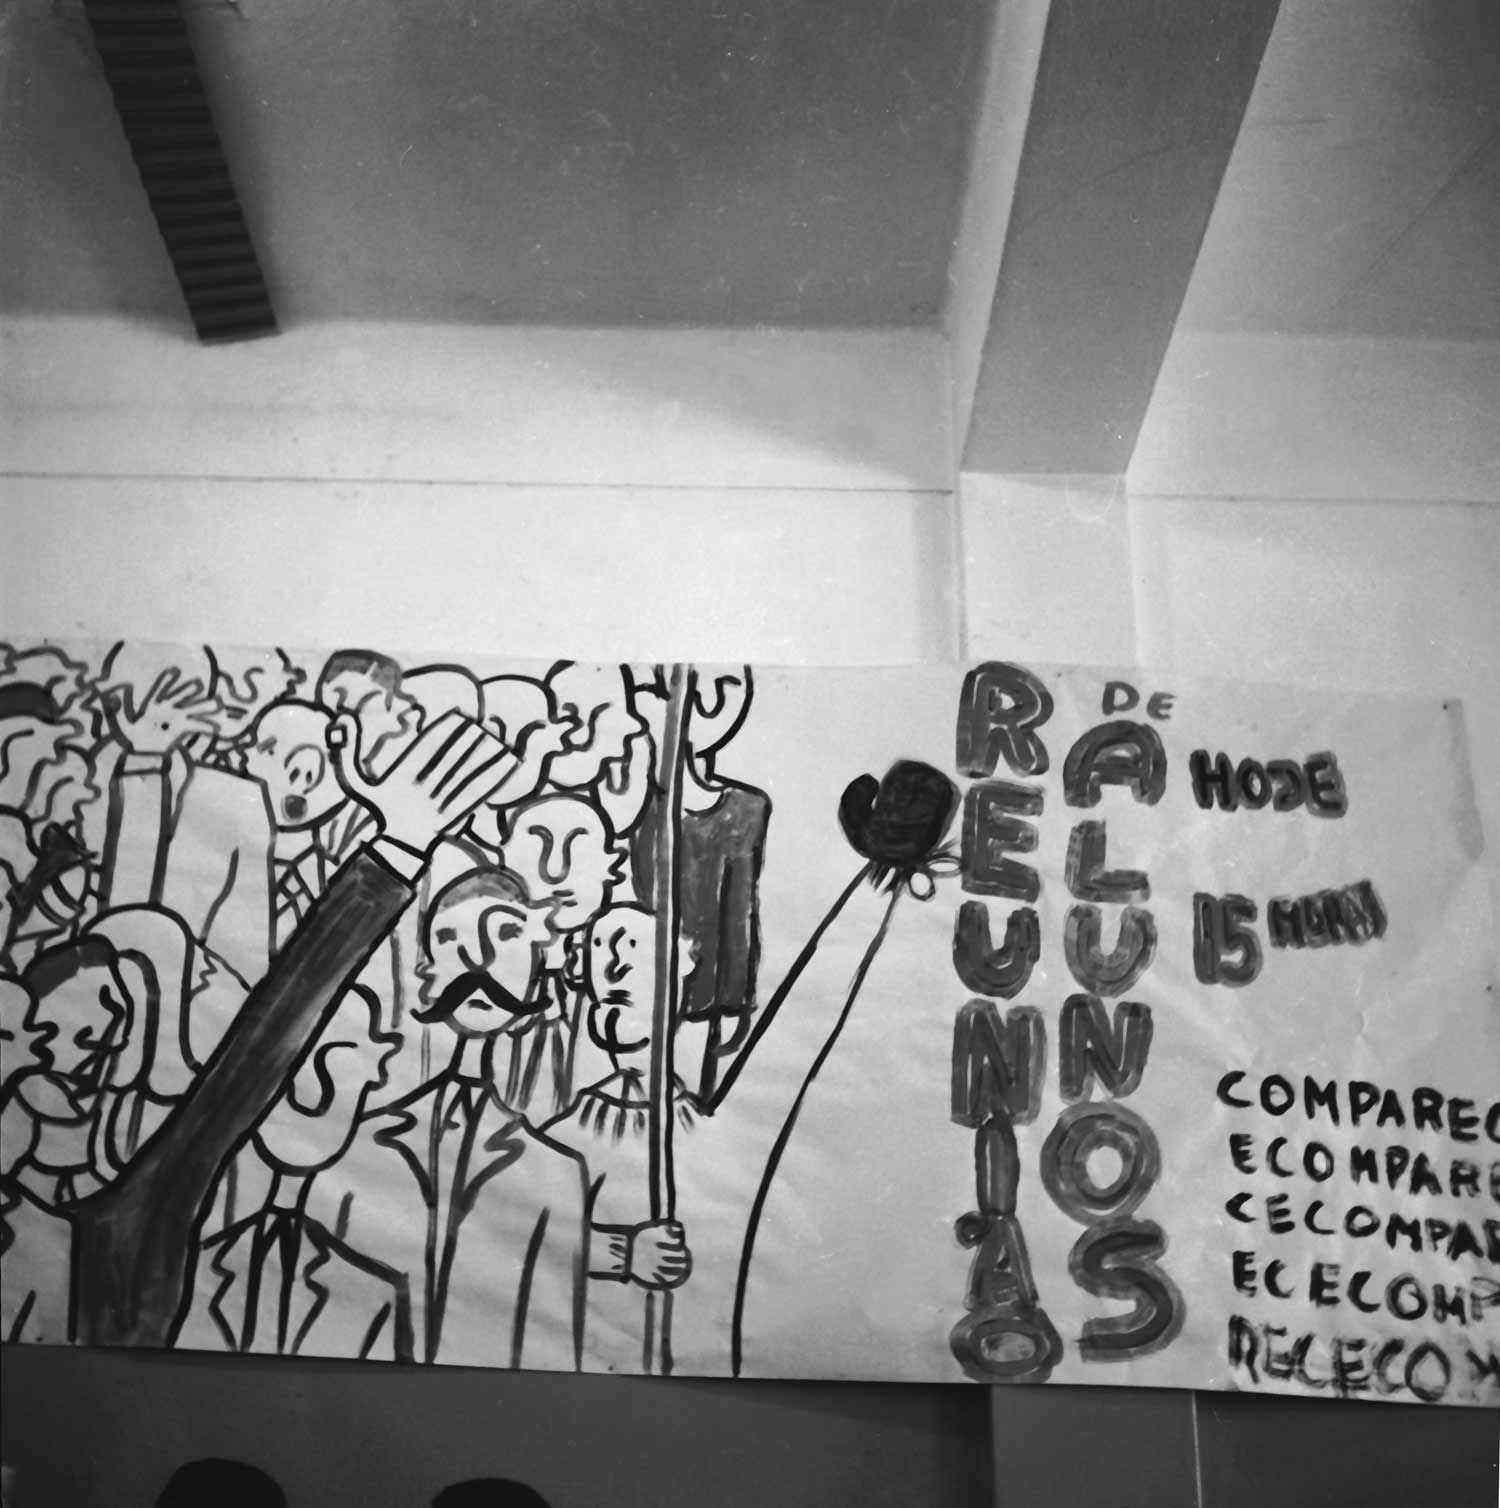 REUNIÃO
DE
ALUNOS
HOJE
15 HORAS
COMPAREC
ECOMPARE
CECOMPAR
ECECOMP
RECECOM